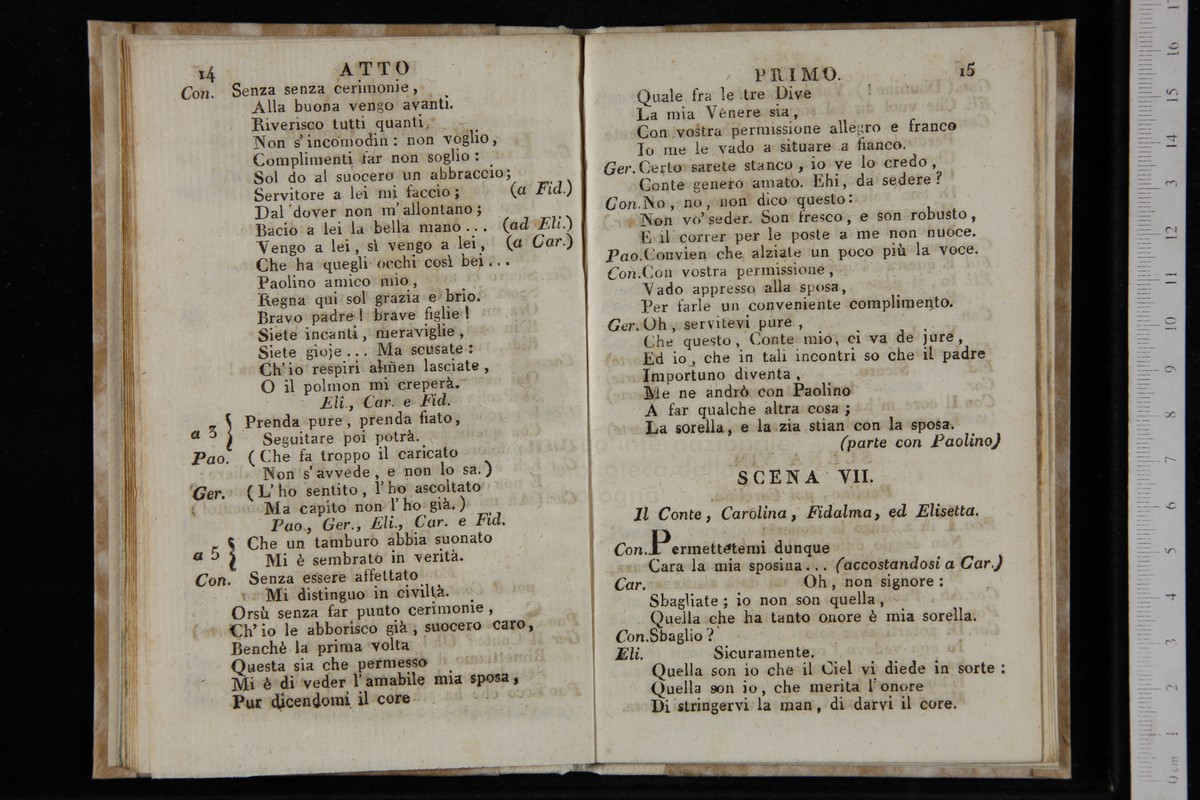 14 ATTO
Con. Senza senza cerimonie,
Alla buona vengo avanti.
Riverisco tutti quanti,
Non s'incomodin: non voglio,
Complimenti far non soglio:
Sol do al suocero un abbraccio;
Servitore a lei mi faccio; (a Fid.)
Dal dover non m'allontano;
Bacio a lei la bella mano... (ad Eli.)
Vengo a lei, sì vengo a lei, (a Car.)
Che ha quegli occhi così bei...
Paolino amico mio,
Regna qui sol grazia e brio.
Bravo padre! brave figlie!
Siete incanti, meraviglie,
Siete gioje... Ma scusate:
Ch'io respiri almen lasciate,
O il polmon mi creperà.
Eli., Car. e Fid.
a 3 { Prenda pure, prenda fiato,
Seguitare poi potrà.
Pao. (Che fa troppo il caricato
Non s'avvede, e non lo sa.)
Ger. (L'ho sentito, l'ho ascoltato
Ma capito non l'ho già.)
Pao., Ger., Eli., Car. e Fid.
a 5 { Che un tamburo abbia suonato
Mi è sembrato in verità.
Con. Senza essere affettato
Mi distinguo in civiltà.
Orsù senza far punto cerimonie,
Ch'io le abborisco già, suocero caro,
Benchè la prima volta
Questa sia che permesso
Mi è di veder l'amabile mia sposa,
Pur dicendomi il core
PRIMO. 15
Quale fra le tre Dive
La mia Venere sia,
Con vostra permissione allegro e franco
Io me le vado a situare a fianco.
Ger. Certo sarete stanco, io ve lo credo,
Conte genero amato. Ehi, da sedere?
Con. No, no, non dico questo:
Non vo' seder. Son fresco, e son robusto,
E il correr per le poste a me non nuoce.
Pao. Convien che alziate un poco più la voce.
Con. Con vostra permissione,
Vado appresso alla sposa,
Per farle un conveniente complimento.
Ger. Oh, servitevi pure,
Che questo, Conte mio, ci va de jure,
Ed io, che in tali incontri so che il padre
Importuno diventa,
Me ne andrò con Paolino
A far qualche altra cosa;
La sorella, e la zia stian con la sposa.
(parte con Paolino)
SCENA VII.
Il Conte, Carolina, Fidalma, ed Elisetta.
Con. Permettetemi dunque
Cara la mia sposina... (accostandosi a Car.)
Car. Oh, non signore:
Sbagliate; io non son quella,
Quella che ha tanto onore è mia sorella.
Con. Sbaglio?
Eli. Sicuramente.
Quella son io che il Ciel vi diede in sorte:
Quella son io, che merita l'onore
Di stringervi la man, di darvi il core.